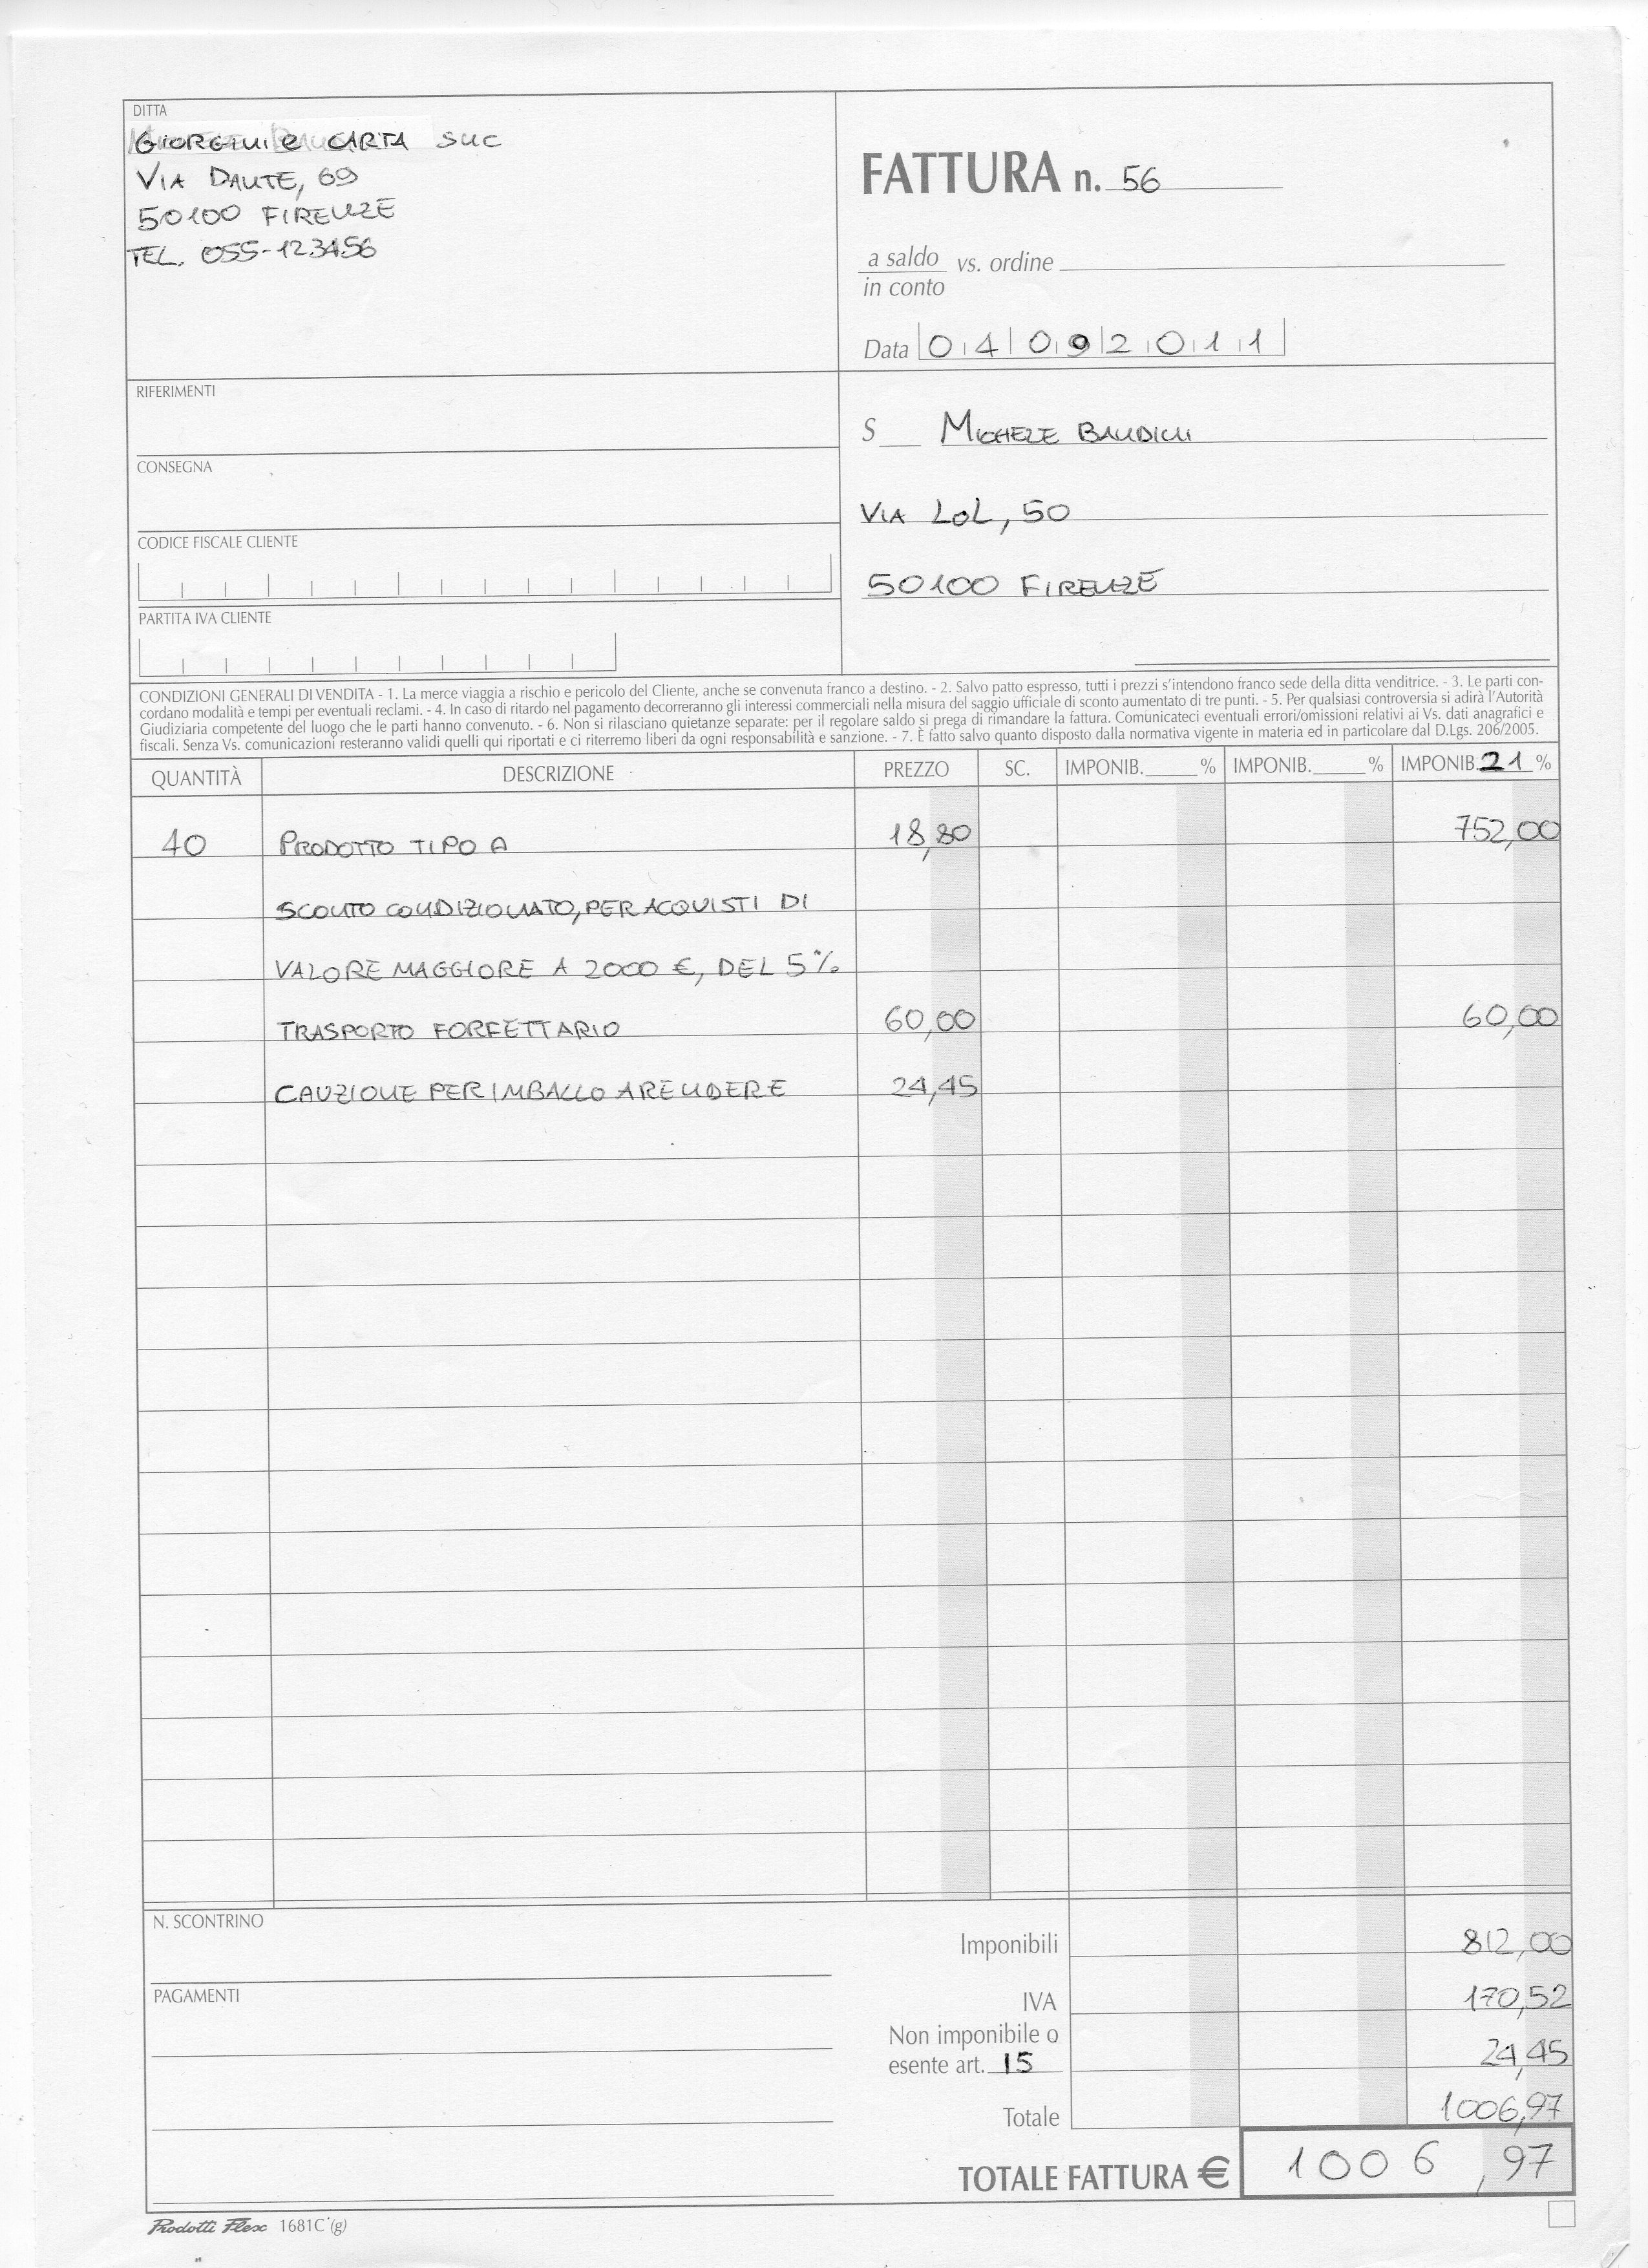 DITTA
GIORGINI e CARTA SNC
VIA DANTE, 69
50100 FIRENZE
TEL. 055-123456
FATTURA n. 56
a saldo vs. ordine
in conto
Data 04 09 2011
RIFERIMENTI
CONSEGNA
CODICE FISCALE CLIENTE
PARTITA IVA CLIENTE
S MICHELE BANDINI
VIA LOL, 50
50100 FIRENZE
CONDIZIONI GENERALI DI VENDITA - 1. La merce viaggia a rischio e pericolo del Cliente, anche se convenuta franco a destino. - 2. Salvo patto espresso, tutti i prezzi s'intendono franco sede della ditta venditrice. - 3. Le parti con-
cordano modalità e tempi per eventuali reclami. - 4. In caso di ritardo nel pagamento decorreranno gli interessi commerciali nella misura del saggio ufficiale di sconto aumentato di tre punti. - 5. Per qualsiasi controversia si adirà l'Autorità
Giudiziaria competente del luogo che le parti hanno convenuto. - 6. Non si rilasciano quietanze separate: per il regolare saldo si prega di rimandare la fattura. Comunicateci eventuali errori/omissioni relativi ai Vs. dati anagrafici e
fiscali. Senza Vs. comunicazioni resteranno validi quelli qui riportati e ci riterremo liberi da ogni responsabilità e sanzione. - 7. È fatto salvo quanto disposto dalla normativa vigente in materia ed in particolare dal D.Lgs. 206/2005.
QUANTITÀ DESCRIZIONE PREZZO SC. IMPONIB. % IMPONIB. % IMPONIB. 21 %
40 PRODOTTO TIPO A 18,80 752,00
SCONTO CONDIZIONATO, PER ACQUISTI DI
VALORE MAGGIORE A 2000 €, DEL 5%
TRASPORTO FORFETTARIO 60,00 60,00
CAUZIONE PER IMBALLO A RENDERE 24,45
N. SCONTRINO
PAGAMENTI
Imponibili 812,00
IVA 170,52
Non imponibile o
esente art. 15 24,45
Totale 1006,97
TOTALE FATTURA € 1006,97
Prodotti Flex 1681C (g)